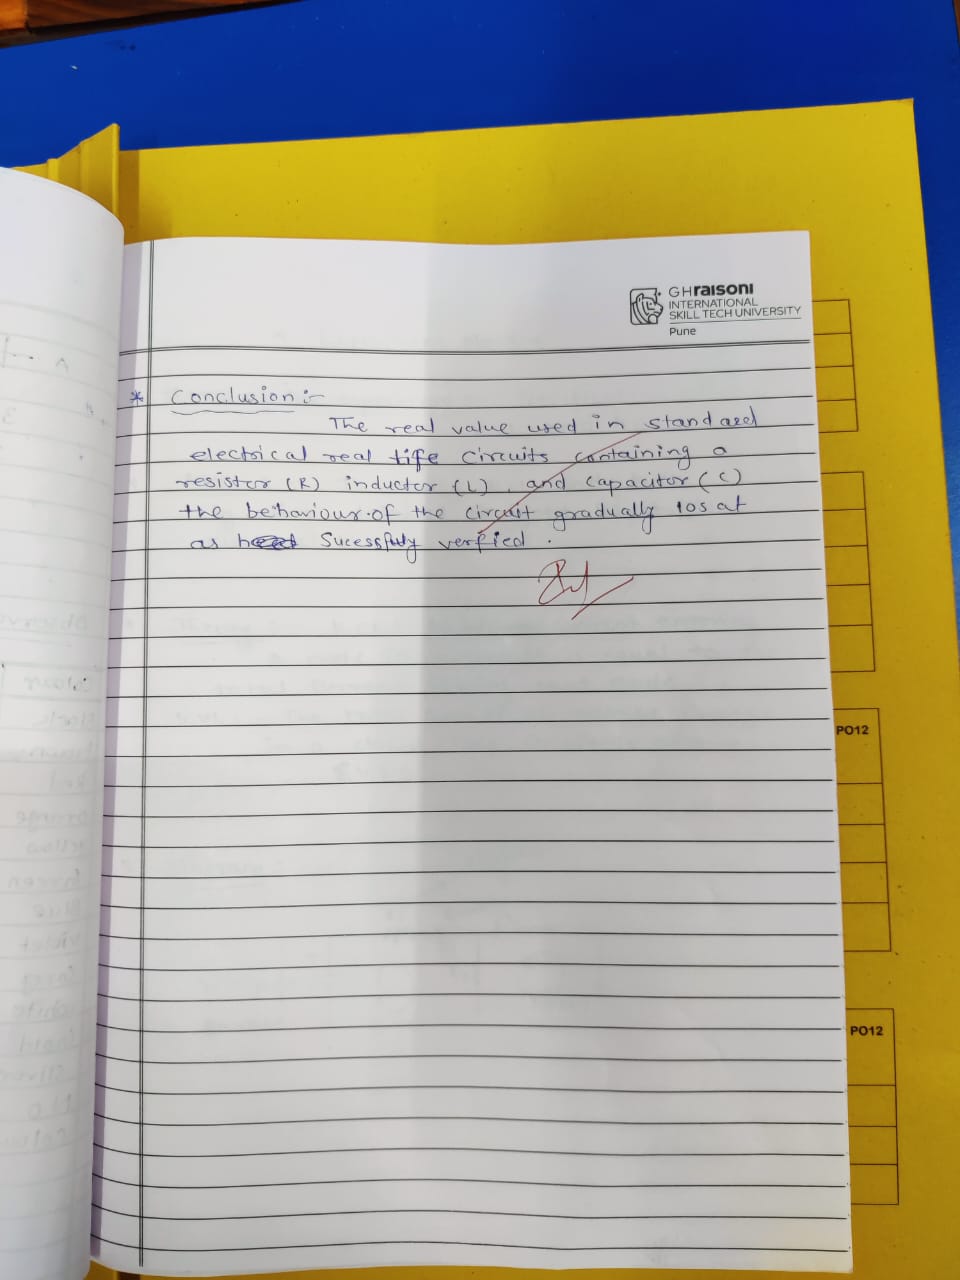 GHraisoni
INTERNATIONAL
SKILL TECH UNIVERSITY
Pune
* Conclusion :-
The real value used in standard
electrical real life circuits containing a
resistor (R) inductor (L), and capacitor (C)
the behaviour of the circuit gradually los at
as Sucessfuly verfied.
PO12
PO12